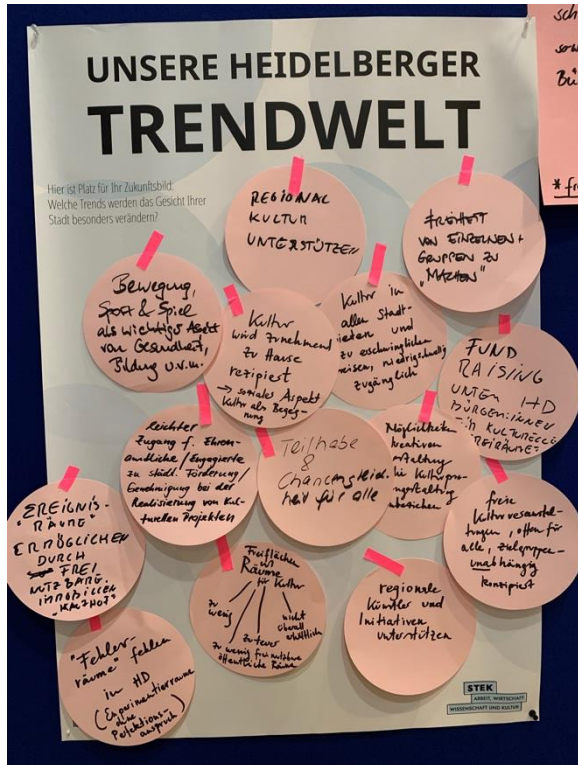 UNSERE HEIDELBERGER
TRENDWELT
Hier ist Platz für Ihr Zukunftsbild:
Welche Trends werden das Gesicht Ihrer
Stadt besonders verändern?
REGIONAL
KULTUR
UNTERSTÜTZEN
FREIHEIT
VON EINZELNEN +
GRUPPEN ZU
"MACHEN"
Bewegung,
Sport & Spiel
als wichtiger Aspekt
von Gesundheit,
Bildung u.v.m.
Kultur
wird zunehmend
zu Hause
rezipiert
→ sozialer Aspekt
Kultur als Begeg-
nung
Kultur in
allen Stadt-
ieten und
zu erschwinglichen
reisen, niedrigschwellig
zugänglich
FUND
RAISING
UNTER HD
BÜRGER:INNEN
KULTURELLE
FREIRÄUME
Leichter
Zugang f. Ehren-
amtliche/Engagierte
zu städt. Förderung/
Genehmigung bei der
Realisierung von Kul-
turellen Projekten
Teilhabe
&
Chancengleich-
heit für alle
Möglichkeiten
kreativen
staltung
Kulturpro-
ngestaltung
einbeziehen
freie
Kulturveranstal-
tungen, offen für
alle, zielgruppen-
unabhängig
konzipiert
"EREIGNIS-
RÄUME"
ERMÖGLICHEN
DURCH
FREI
NUTZBARE
IMMOBILIEN
Freiflächen
Räume
für Kultur
zu
wenig
zu teuer
nicht
überall
erhältlich
zu wenig frei nutzbare
öffentliche Räume
regionale
Künstler und
Initiativen
unterstützen
"Fehler-
räume" fehlen
in HD
(Experimentierräume
ohne
Perfektions-
anspruch)
STEK
ARBEIT, WIRTSCHAFT
WISSENSCHAFT UND KULTUR
sch
sow
Bü
* fre